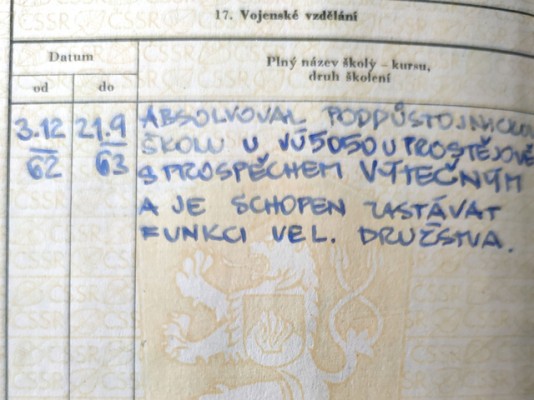 17. Vojenské vzdělání
Datum
od
do
Plný název školy - kursu,
druh školení
3.12
62
21.9
63
ABSOLVOVAL PODDŮSTOJNICKOU
ŠKOLU U VÚ5050 U PROSTĚJOVĚ
S PROSPĚCHEM VÝTEČNÝM
A JE SCHOPEN ZASTÁVAT
FUNKCI VEL. DRUŽSTVA.